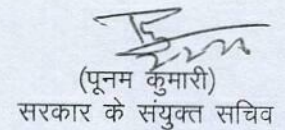 (पूनम कुमारी)
सरकार के संयुक्त सचिव